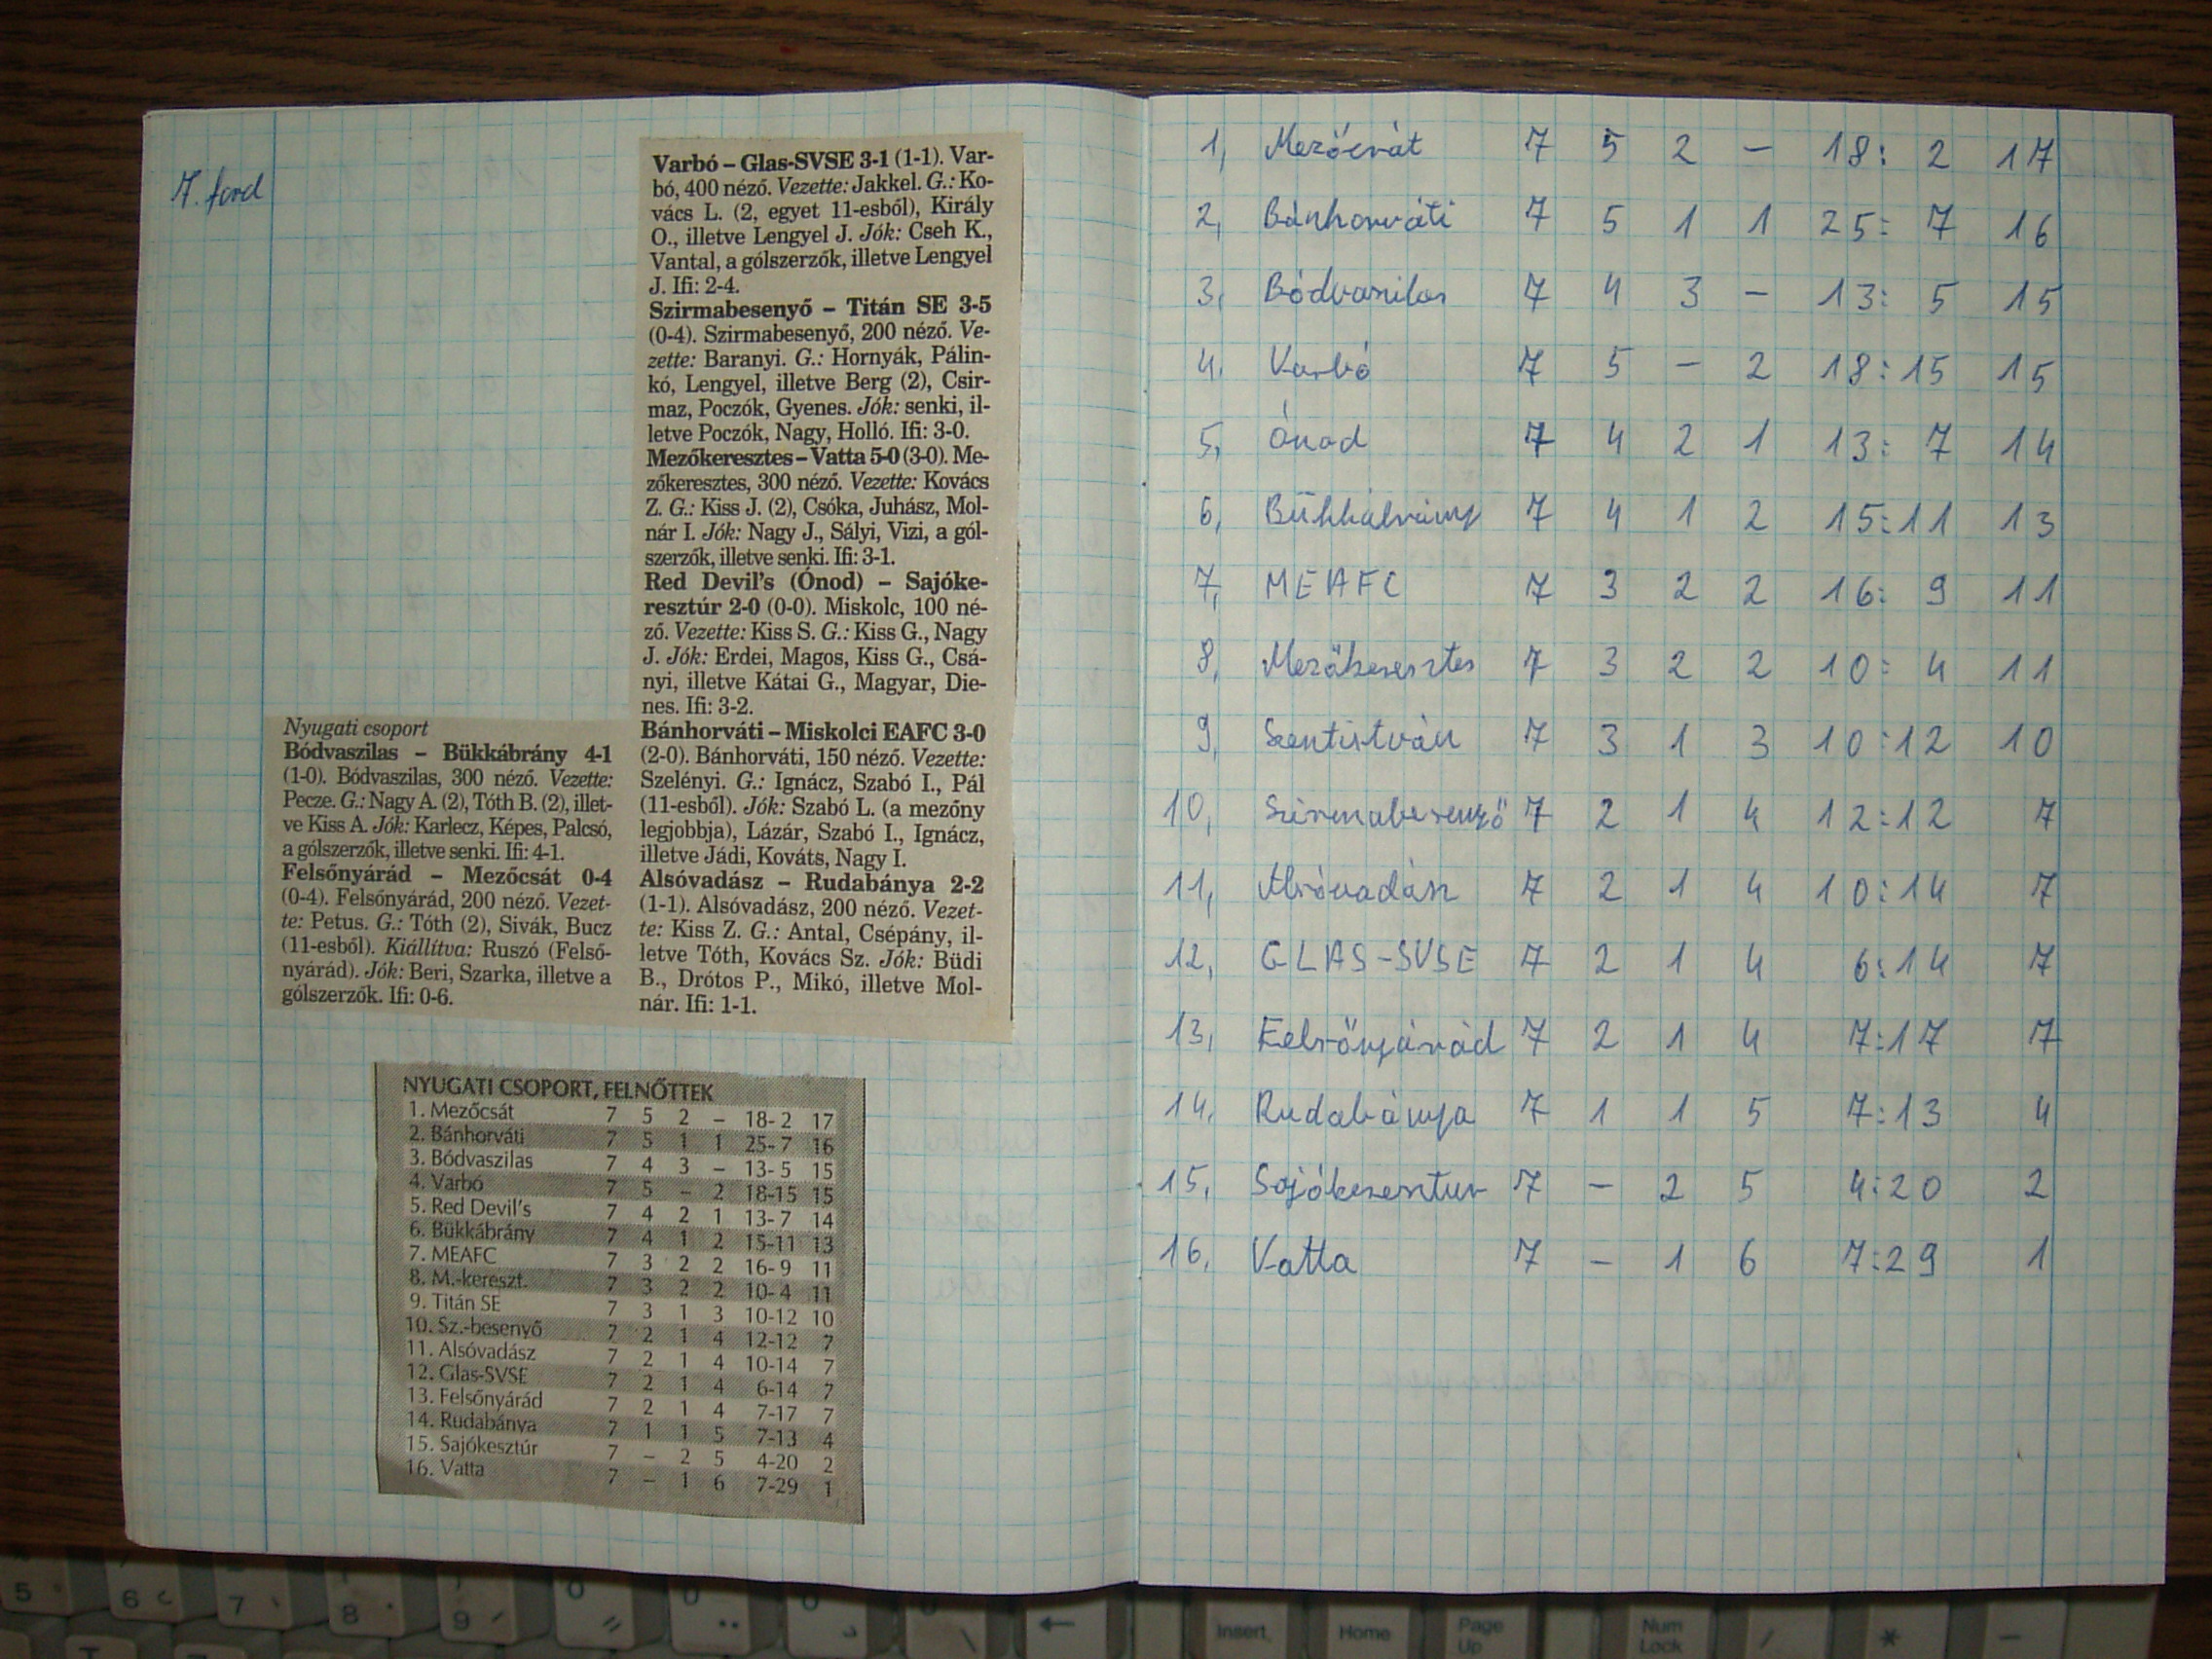 7. ford
Nyugati csoport
Bódvaszilas – Bükkábrány 4-1
(1-0). Bódvaszilas, 300 néző. Vezette:
Pecze. G.: Nagy A. (2), Tóth B. (2), illet-
ve Kiss A. Jók: Karlecz, Képes, Palcsó,
a gólszerzők, illetve senki. Ifi: 4-1.
Felsőnyárád – Mezőcsát 0-4
(0-4). Felsőnyárád, 200 néző. Vezet-
te: Petus. G.: Tóth (2), Sivák, Bucz
(11-esből). Kiállítva: Ruszó (Felső-
nyárád). Jók: Beri, Szarka, illetve a
gólszerzők. Ifi: 0-6.
Varbó – Glas-SVSE 3-1 (1-1). Var-
bó, 400 néző. Vezette: Jakkel. G.: Ko-
vács L. (2, egyet 11-esből), Király
O., illetve Lengyel J. Jók: Cseh K.,
Vantal, a gólszerzők, illetve Lengyel
J. Ifi: 2-4.
Szirmabesenyő – Titán SE 3-5
(0-4). Szirmabesenyő, 200 néző. Ve-
zette: Baranyi. G.: Hornyák, Pálin-
kó, Lengyel, illetve Berg (2), Csir-
maz, Poczók, Gyenes. Jók: senki, il-
letve Poczók, Nagy, Holló. Ifi: 3-0.
Mezőkeresztes – Vatta 5-0 (3-0). Me-
zőkeresztes, 300 néző. Vezette: Kovács
Z. G.: Kiss J. (2), Csóka, Juhász, Mol-
nár I. Jók: Nagy J., Sályi, Vizi, a gól-
szerzők, illetve senki. Ifi: 3-1.
Red Devil's (Ónod) – Sajóke-
resztúr 2-0 (0-0). Miskolc, 100 né-
ző. Vezette: Kiss S. G.: Kiss G., Nagy
J. Jók: Erdei, Magos, Kiss G., Csá-
nyi, illetve Kátai G., Magyar, Die-
nes. Ifi: 3-2.
Bánhorváti – Miskolci EAFC 3-0
(2-0). Bánhorváti, 150 néző. Vezette:
Szelényi. G.: Ignácz, Szabó I., Pál
(11-esből). Jók: Szabó L. (a mezőny
legjobbja), Lázár, Szabó I., Ignácz,
illetve Jádi, Kováts, Nagy I.
Alsóvadász – Rudabánya 2-2
(1-1). Alsóvadász, 200 néző. Vezet-
te: Kiss Z. G.: Antal, Csépány, il-
letve Tóth, Kovács Sz. Jók: Büdi
B., Drótos P., Mikó, illetve Mol-
nár. Ifi: 1-1.
NYUGATI CSOPORT, FELNŐTTEK
1. Mezőcsát 7 5 2 – 18- 2 17
2. Bánhorváti 7 5 1 1 25- 7 16
3. Bódvaszilas 7 4 3 – 13- 5 15
4. Varbó 7 5 – 2 18-15 15
5. Red Devil's 7 4 2 1 13- 7 14
6. Bükkábrány 7 4 1 2 15-11 13
7. MEAFC 7 3 2 2 16- 9 11
8. M.-kereszt. 7 3 2 2 10- 4 11
9. Titán SE 7 3 1 3 10-12 10
10. Sz.-besenyő 7 2 1 4 12-12 7
11. Alsóvadász 7 2 1 4 10-14 7
12. Glas-SVSE 7 2 1 4 6-14 7
13. Felsőnyárád 7 2 1 4 7-17 7
14. Rudabánya 7 1 1 5 7-13 4
15. Sajókesztúr 7 – 2 5 4-20 2
16. Vatta 7 – 1 6 7-29 1
1, Mezőcsát 7 5 2 – 18: 2 17
2, Bánhorváti 7 5 1 1 25: 7 16
3, Bódvaszilas 7 4 3 – 13: 5 15
4. Varbó 7 5 – 2 18:15 15
5, Ónod 7 4 2 1 13: 7 14
6, Bükkábrány 7 4 1 2 15:11 13
7, MEAFC 7 3 2 2 16: 9 11
8, Mezőkeresztes 7 3 2 2 10: 4 11
9, Szentistván 7 3 1 3 10:12 10
10, Szirmabesenyő 7 2 1 4 12:12 7
11, Alsóvadász 7 2 1 4 10:14 7
12, GLAS-SVSE 7 2 1 4 6:14 7
13, Felsőnyárád 7 2 1 4 7:17 7
14, Rudabánya 7 1 1 5 7:13 4
15, Sajókeresztur 7 – 2 5 4:20 2
16, Vatta 7 – 1 6 7:29 1
Insert
Home
Page
Up
Num
Lock